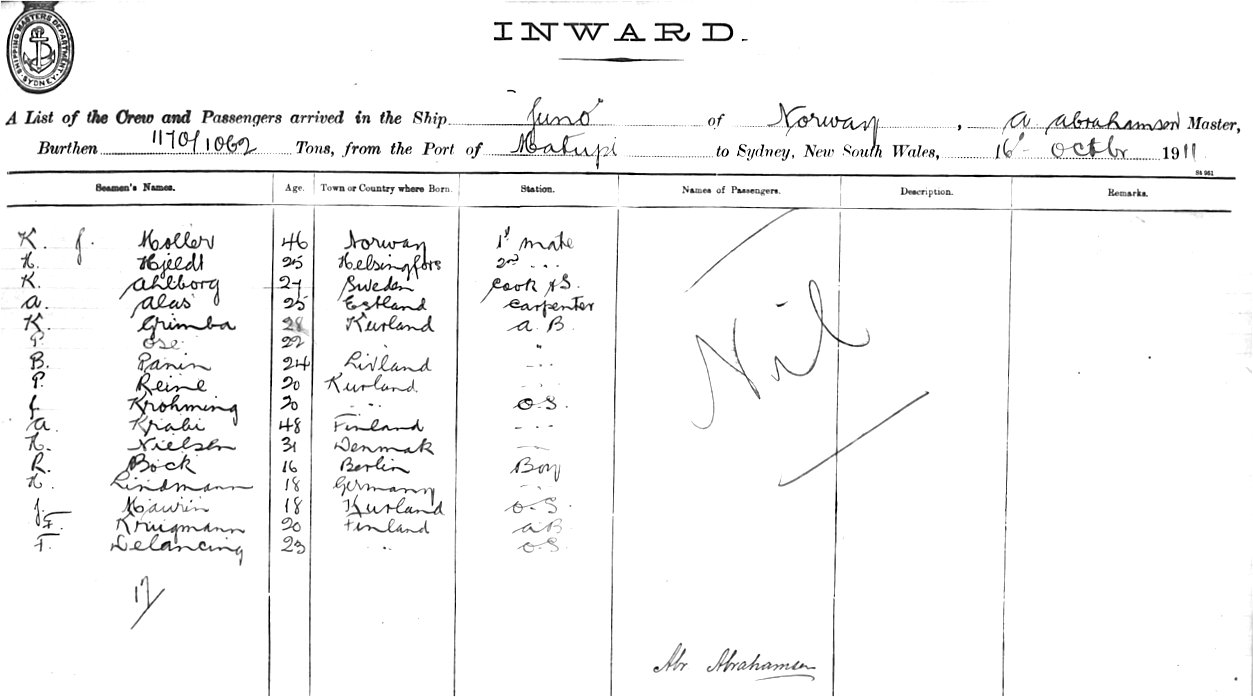 SHIPPING MASTERS DEPARTMENT SYDNEY
INWARD.
A List of the Crew and Passengers arrived in the Ship "Juno" of Norway, A Abrahamsen Master,
Burthen 1170/1062 Tons, from the Port of Matupi to Sydney, New South Wales, 16t Octbr 1911
St 961
Seamen's Names. Age. Town or Country where Born. Station. Names of Passengers. Description. Remarks.
K. J. Moller 46 Norway 1st mate
H. Hjeldt 25 Helsingfors 2nd " "
K. Ahlborg 27 Sweden Cook & S.
A. Alas 25 Estland Carpenter
K. Grimba 28 Kurland A B
P. Ose 22 " "
B. Panin 24 Livland " "
P. Reine 20 Kurland " "
J. Krohming 20 " " O.S.
A. Krabi 48 Finland " "
H. Nielsen 31 Denmak " "
R. Bock 16 Berlin Boy
H. Lindmann 18 Germany " "
J. Maurin 18 Kurland O.S.
F. Kruigmann 20 Finland AB
F. Delancing 23 " " O.S.
Nil
17
Abr Abrahamsen